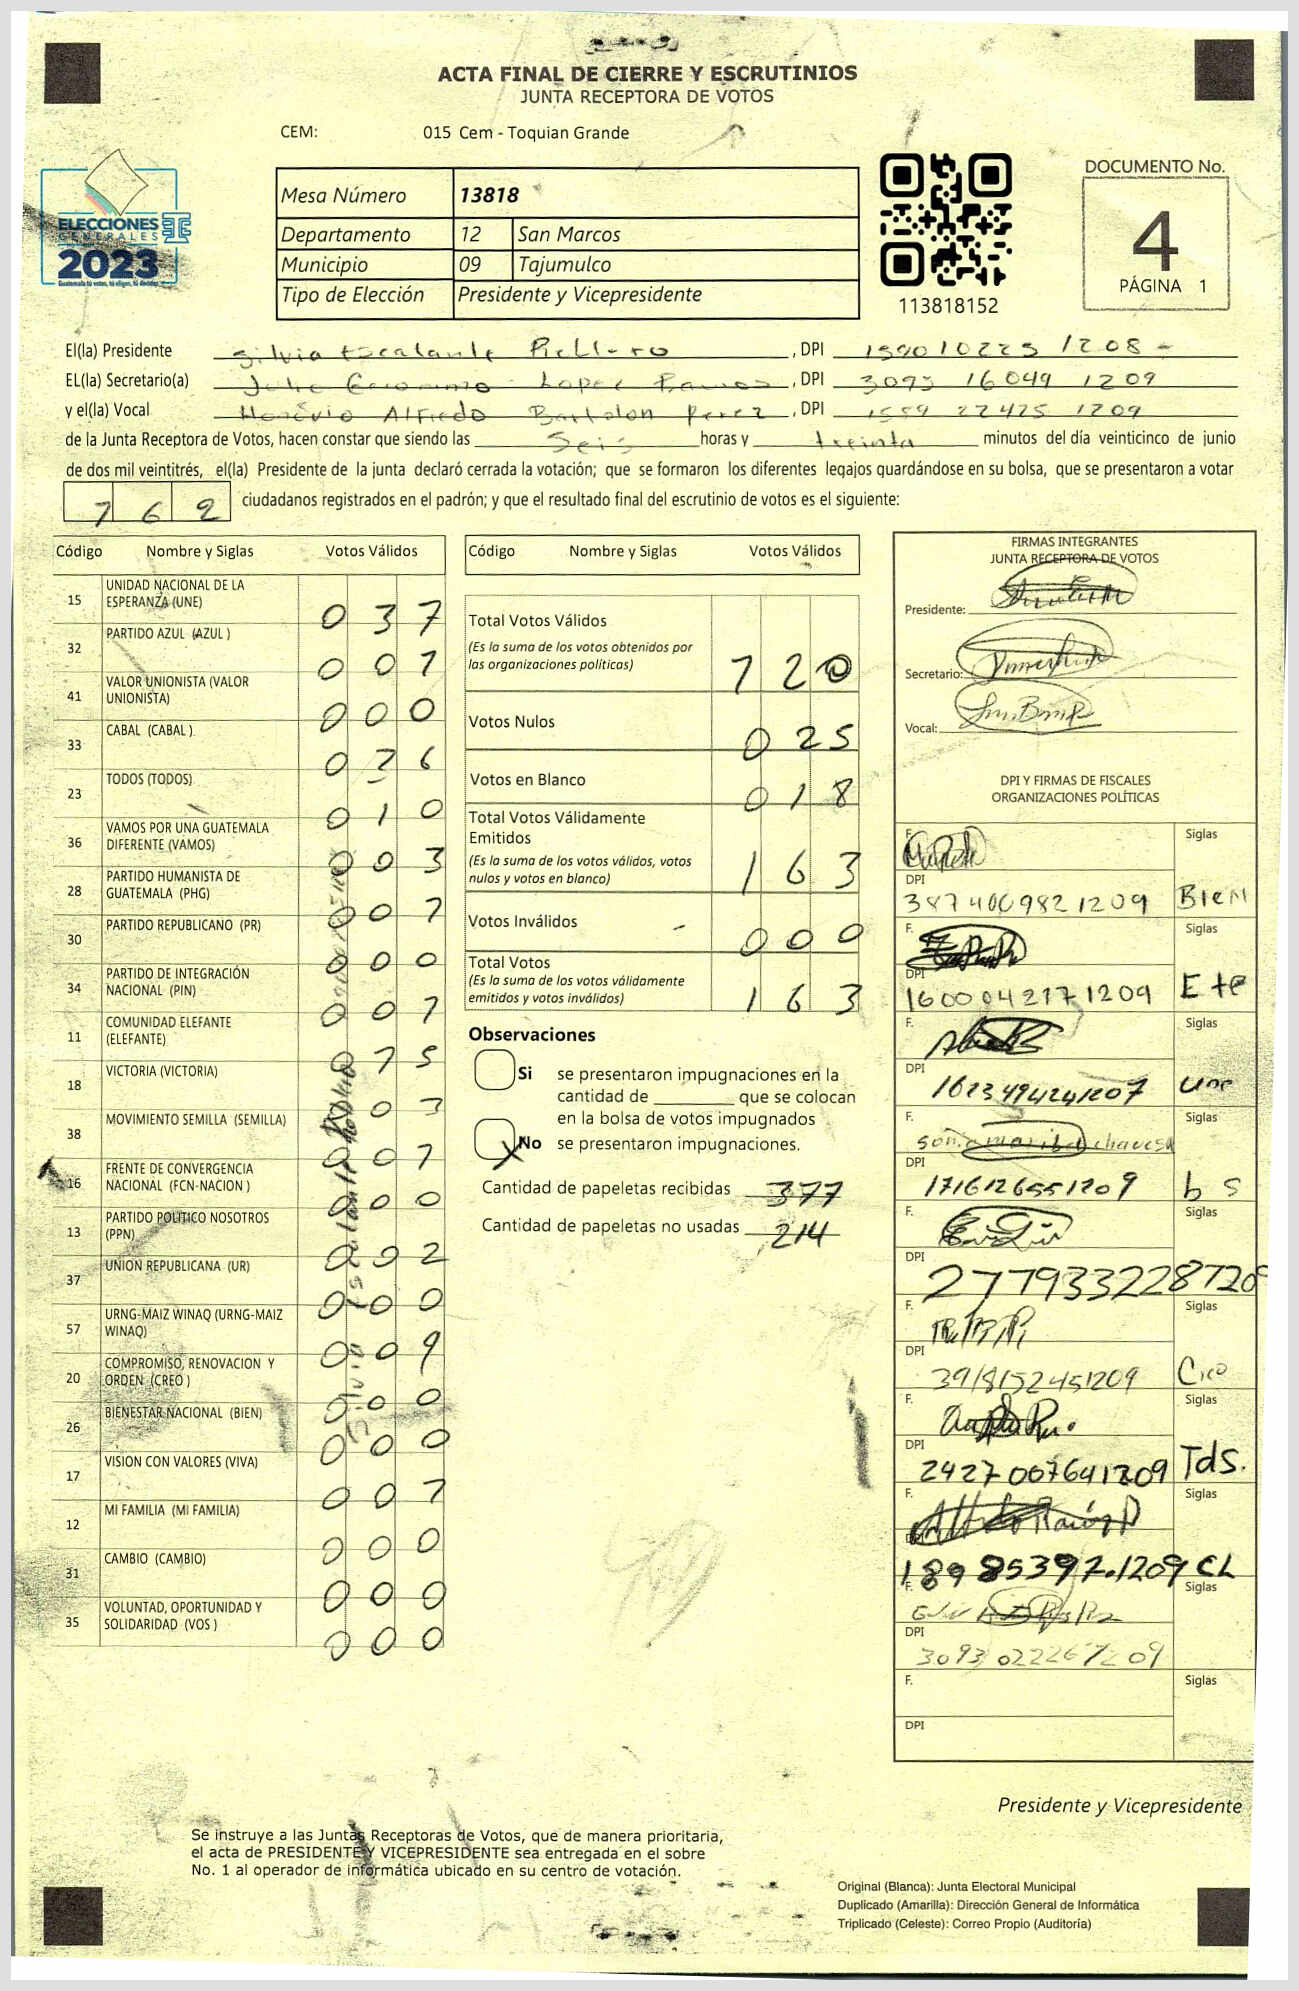 ACTA FINAL DE CIERRE Y ESCRUTINIOS
JUNTA RECEPTORA DE VOTOS
CEM: 015 Cem - Toquian Grande
ELECCIONES
GENERALES
2023
Guatemala tú votas, tú eliges, tú decides
Mesa Número 13818
Departamento 12 San Marcos
Municipio 09 Tajumulco
Tipo de Elección Presidente y Vicepresidente
113818152
DOCUMENTO No.
4
PÁGINA 1
El(la) Presidente Silvia Escalante , DPI 1208
EL(la) Secretario(a) Lopez Ramos , DPI 3093 16049 1209
y el(la) Vocal Alfredo Bartolon Perez , DPI 1559 22425 1209
de la Junta Receptora de Votos, hacen constar que siendo las Seis horas y treinta minutos del día veinticinco de junio
de dos mil veintitrés, el(la) Presidente de la junta declaró cerrada la votación; que se formaron los diferentes legajos guardándose en su bolsa, que se presentaron a votar
762 ciudadanos registrados en el padrón; y que el resultado final del escrutinio de votos es el siguiente:
Código Nombre y Siglas Votos Válidos
15 UNIDAD NACIONAL DE LA ESPERANZA (UNE) 037
32 PARTIDO AZUL (AZUL ) 001
41 VALOR UNIONISTA (VALOR UNIONISTA) 000
33 CABAL (CABAL ) 026
23 TODOS (TODOS) 010
36 VAMOS POR UNA GUATEMALA DIFERENTE (VAMOS) 003
28 PARTIDO HUMANISTA DE GUATEMALA (PHG) 001
30 PARTIDO REPUBLICANO (PR) 000
34 PARTIDO DE INTEGRACIÓN NACIONAL (PIN) 001
11 COMUNIDAD ELEFANTE (ELEFANTE) 75
18 VICTORIA (VICTORIA) 03
38 MOVIMIENTO SEMILLA (SEMILLA) 001
16 FRENTE DE CONVERGENCIA NACIONAL (FCN-NACION ) 000
13 PARTIDO POLÍTICO NOSOTROS (PPN) 002
37 UNION REPUBLICANA (UR) 000
57 URNG-MAIZ WINAQ (URNG-MAIZ WINAQ) 009
20 COMPROMISO, RENOVACION Y ORDEN (CREO ) 000
26 BIENESTAR NACIONAL (BIEN) 000
17 VISION CON VALORES (VIVA) 001
12 MI FAMILIA (MI FAMILIA) 000
31 CAMBIO (CAMBIO) 000
35 VOLUNTAD, OPORTUNIDAD Y SOLIDARIDAD (VOS ) 000
Código Nombre y Siglas Votos Válidos
Total Votos Válidos 120
(Es la suma de los votos obtenidos por
las organizaciones políticas)
Votos Nulos 025
Votos en Blanco 018
Total Votos Válidamente
Emitidos
(Es la suma de los votos válidos, votos
nulos y votos en blanco) 163
Votos Inválidos 000
Total Votos
(Es la suma de los votos válidamente
emitidos y votos inválidos) 163
Observaciones
Si se presentaron impugnaciones en la
cantidad de ________ que se colocan
en la bolsa de votos impugnados
No se presentaron impugnaciones.
Cantidad de papeletas recibidas 377
Cantidad de papeletas no usadas 214
FIRMAS INTEGRANTES
JUNTA RECEPTORA DE VOTOS
Presidente:
Secretario:
Vocal:
DPI Y FIRMAS DE FISCALES
ORGANIZACIONES POLÍTICAS
F. Siglas
DPI
387400982 1209 Bien
F. Siglas
DPI
1600042171209
F. Siglas
DPI
1623494241207 une
F. Siglas
DPI
1716126551209 b s
F. Siglas
DPI
2779332287209
F. Siglas
DPI
3918152451209
F. Siglas
DPI
2427007641209 Tds.
F. Siglas
DPI
CL
F. Siglas
DPI
F. Siglas
DPI
Presidente y Vicepresidente
Se instruye a las Juntas Receptoras de Votos, que de manera prioritaria,
el acta de PRESIDENTE Y VICEPRESIDENTE sea entregada en el sobre
No. 1 al operador de informática ubicado en su centro de votación.
Original (Blanca): Junta Electoral Municipal
Duplicado (Amarilla): Dirección General de Informática
Triplicado (Celeste): Correo Propio (Auditoría)